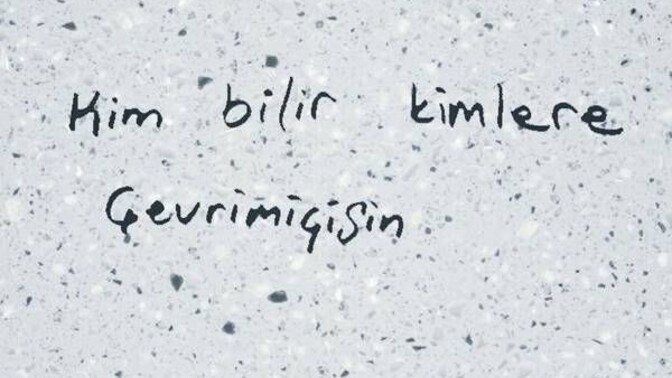 Kim bilir kimlere
Çevrimiçisin